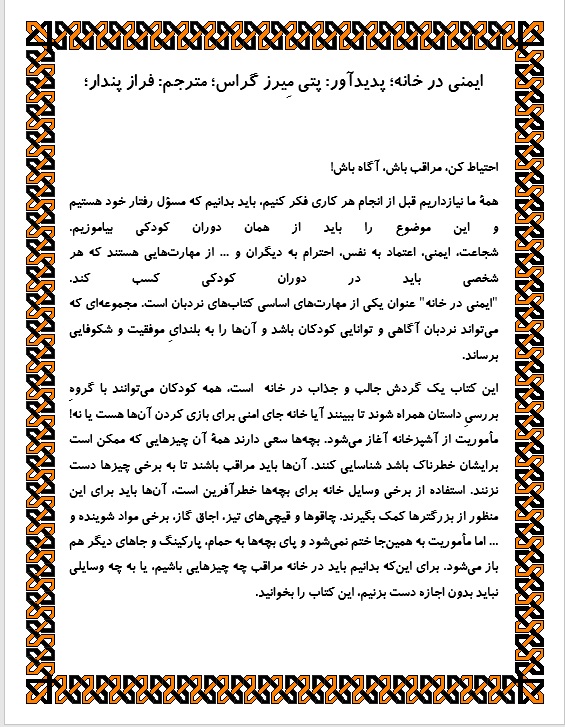 ایمنی در خانه؛ پدیدآور: پتی مِیرز گراس؛ مترجم: فراز پندار؛
احتیاط کن، مراقب باش، آگاه باش!
همهٔ ما نیازداریم قبل از انجام هر کاری فکر کنیم، باید بدانیم که مسؤل رفتار خود هستیم
و این موضوع را باید از همان دوران کودکی بیاموزیم.
شجاعت، ایمنی، اعتماد به نفس، احترام به دیگران و ... از مهارت‌هایی هستند که هر
شخصی باید در دوران کودکی کسب کند.
"ایمنی در خانه" عنوان یکی از مهارت‌های اساسی کتاب‌های نردبان است. مجموعه‌ای که
می‌تواند نردبان آگاهی و توانایی کودکان باشد و آن‌ها را به بلندایِ موفقیت و شکوفایی
برساند.
این کتاب یک گردش جالب و جذاب در خانه است، همه کودکان می‌توانند با گروهِ
بررسیِ داستان همراه شوند تا ببینند آیا خانه جای امنی برای بازی کردن آن‌ها هست یا نه!
مأموریت از آشپزخانه آغاز می‌شود. بچه‌ها سعی دارند همهٔ آن چیزهایی که ممکن است
برایشان خطرناک باشد شناسایی کنند. آن‌ها باید مراقب باشند تا به برخی چیزها دست
نزنند. استفاده از برخی وسایل خانه برای بچه‌ها خطرآفرین است، آن‌ها باید برای این
منظور از بزرگترها کمک بگیرند. چاقوها و قیچی‌های تیز، اجاق گاز، برخی مواد شوینده و
... اما مأموریت به همین‌جا ختم نمی‌شود و پای بچه‌ها به حمام، پارکینگ و جاهای دیگر هم
باز می‌شود. برای این‌که بدانیم باید در خانه مراقب چه چیزهایی باشیم، یا به چه وسایلی
نباید بدون اجازه دست بزنیم، این کتاب را بخوانید.